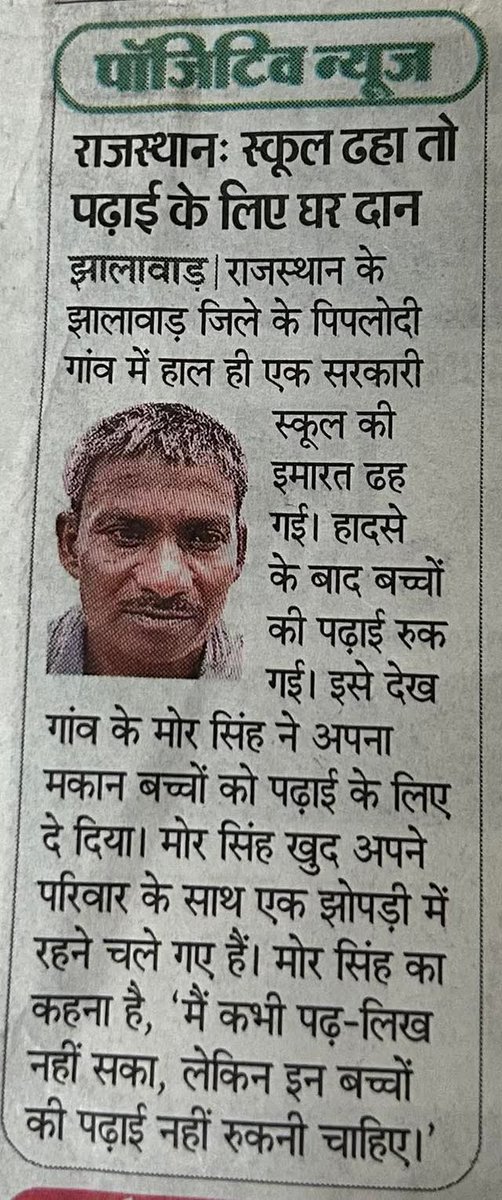 पॉजिटिव न्यूज
राजस्थानः स्कूल ढहा तो
पढ़ाई के लिए घर दान
झालावाड़|राजस्थान के
झालावाड़ जिले के पिपलोदी
गांव में हाल ही एक सरकारी
स्कूल की
इमारत ढह
गई। हादसे
के बाद बच्चों
की पढ़ाई रुक
गई। इसे देख
गांव के मोर सिंह ने अपना
मकान बच्चों को पढ़ाई के लिए
दे दिया। मोर सिंह खुद अपने
परिवार के साथ एक झोपड़ी में
रहने चले गए हैं। मोर सिंह का
कहना है, ‘मैं कभी पढ़-लिख
नहीं सका, लेकिन इन बच्चों
की पढ़ाई नहीं रुकनी चाहिए।’